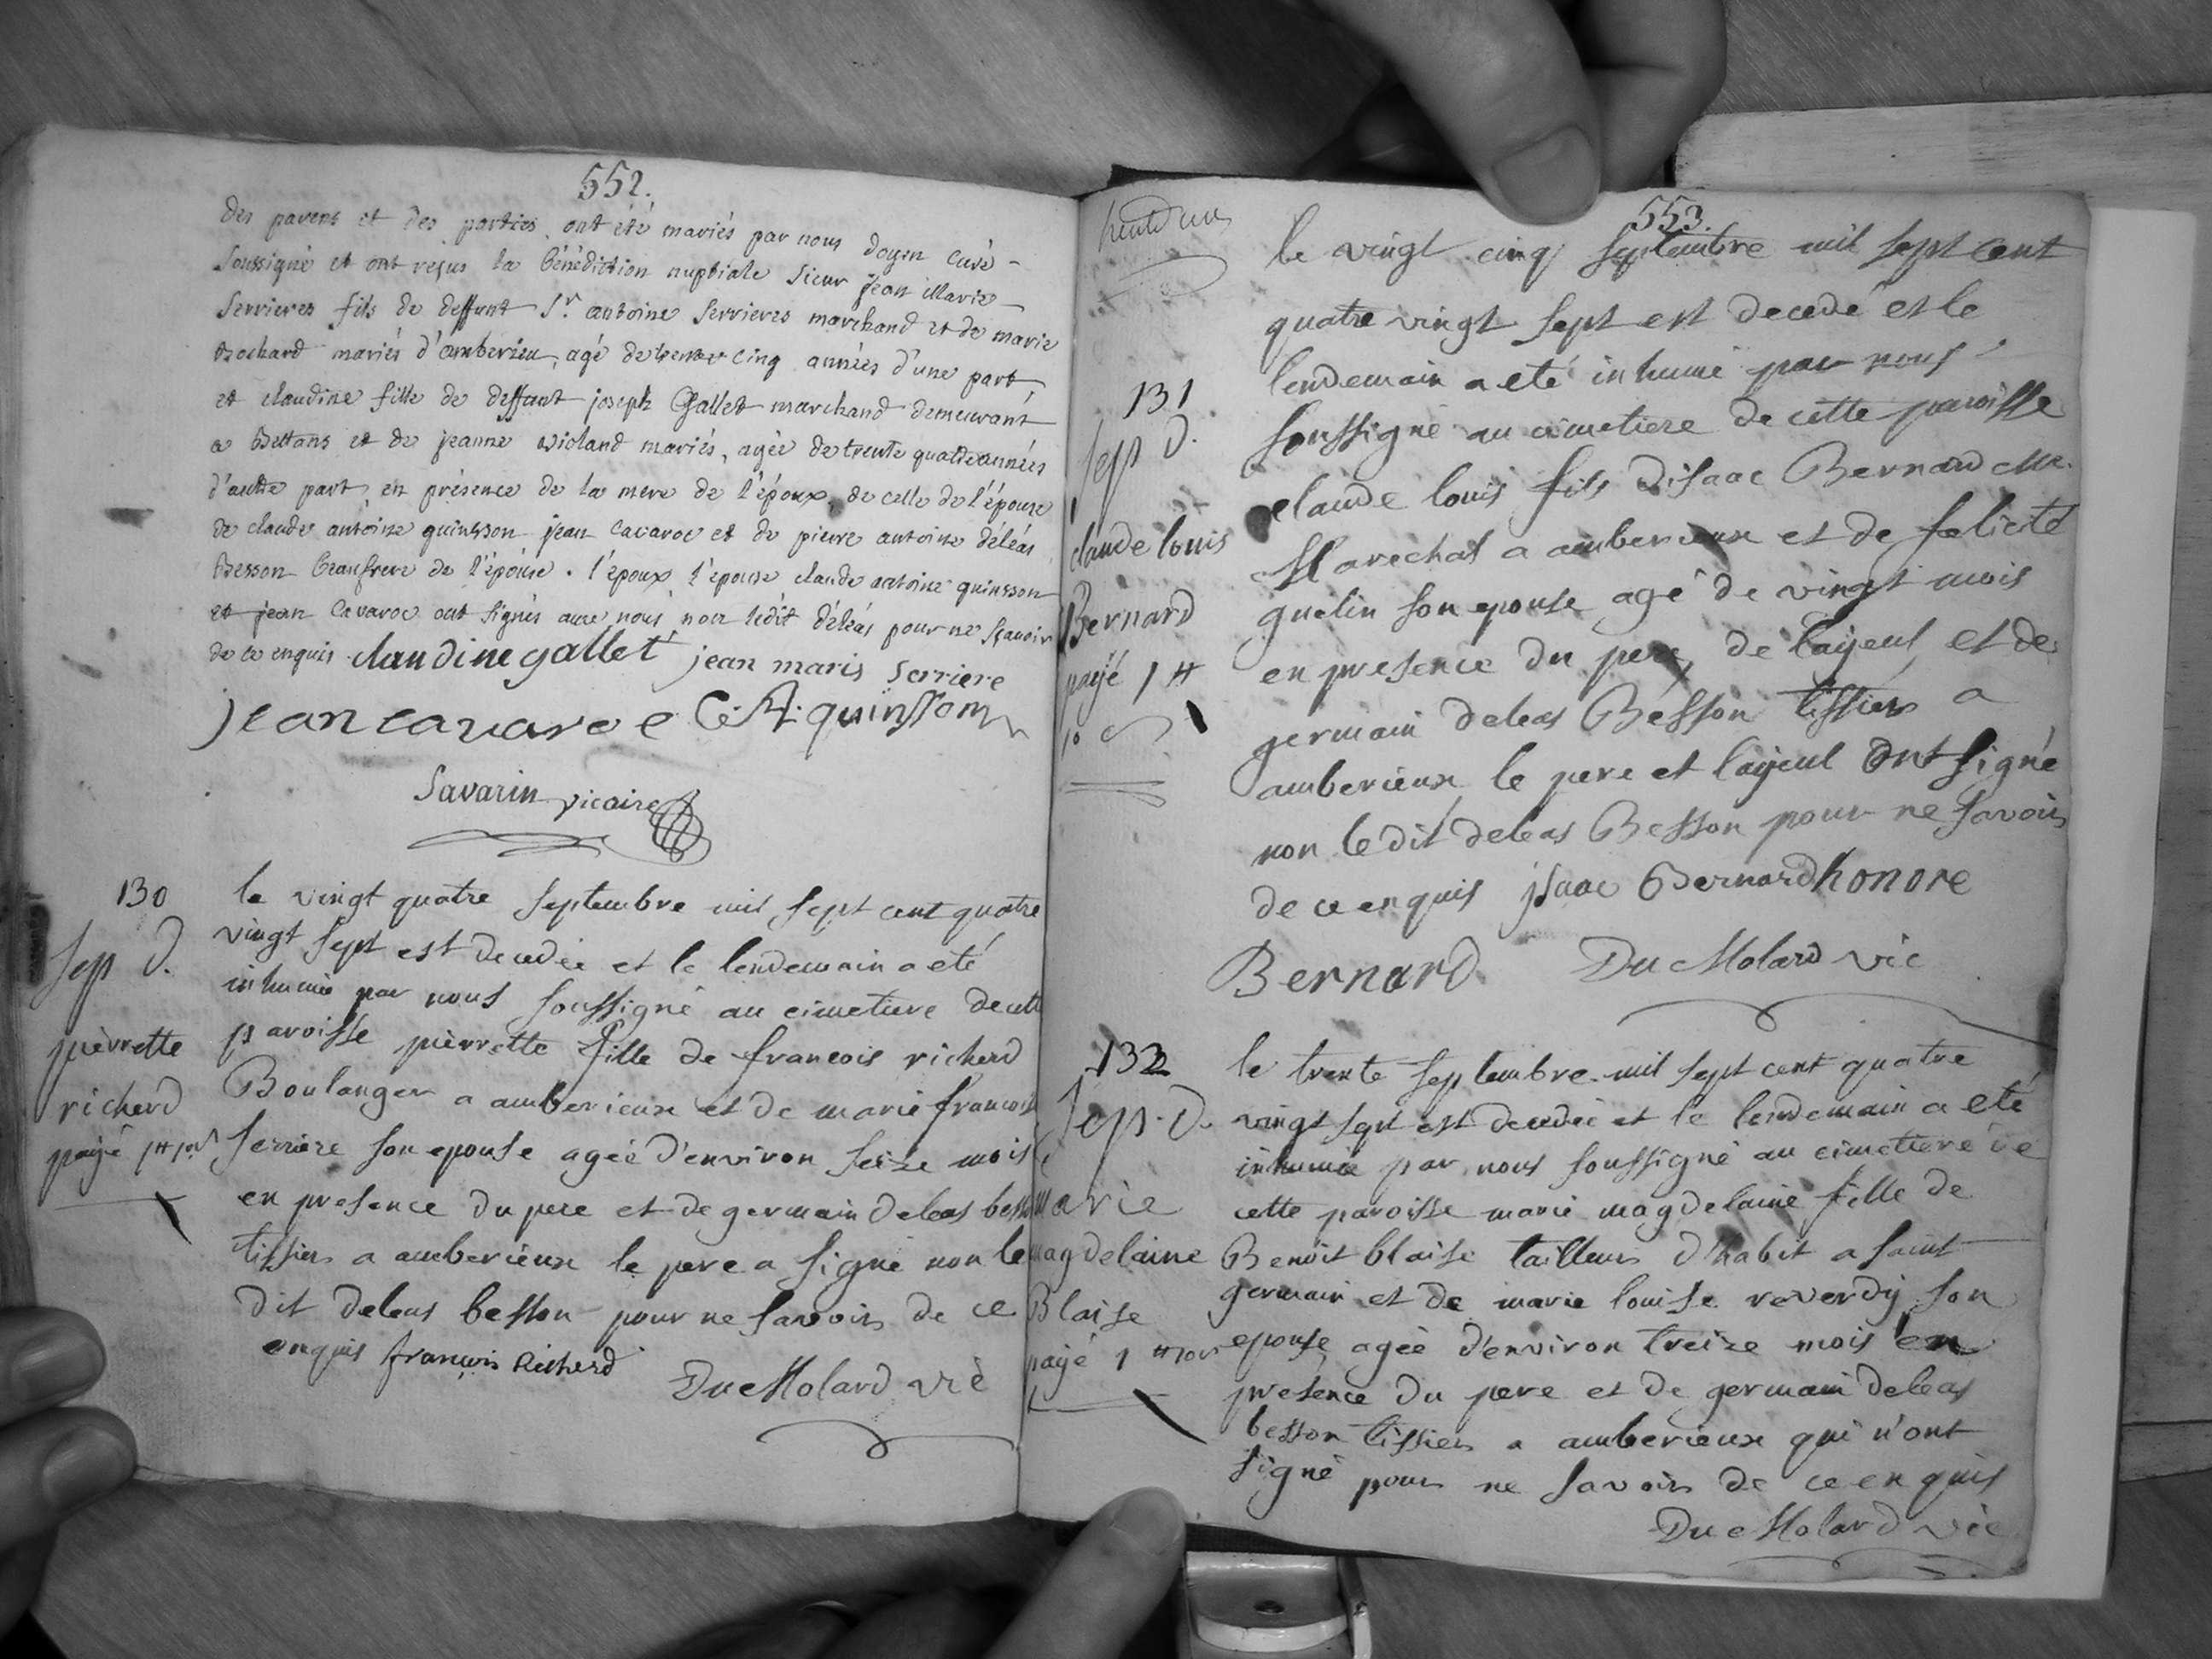 552.
des parens et des parties ont été mariés par nous doyen curé
soussigné et ont reçus la bénédiction nuptiale sieur jean Marie
Serrieres fils de deffunt Sr. antoine Serrieres marchand et de marie
Brochard mariés d'amberieu, agé de trente cinq années d'une part
et claudine fille de deffunt joseph Gallet marchand demeurant
a Bettans et de jeanne violand mariés, agée de trente quatre années
d'autre part en présence de la mere de l'époux, de celle de l'épouse
de claude antoine quinsson jean cavaroc et de pierre antoine déléas
Besson beaufrere de l'épouse. l'époux l'épouse claude antoine quinsson
et jean Cavaroc ont signés avec nous non ledit déléas pour ne sçavoir
de ce enquis claudine gallet jean maris serriere
jean cavaroc C. A. quinsson
Savarin vicaire
130
Sep d.
pierrette
richerd
payé 1 #
le vingt quatre septembre mil sept cent quatre
vingt sept est decedée et le lendemain a eté
inhumée par nous soussigné au cimetiere de cette
paroisse pierrette fille de francois richerd
Boulanger a amberieux et de marie francoise
serriere son epouse agée d'environ seize mois
en presence du pere et de germain deleas besson
tissier a amberieux le pere a signé non le
dit deleas besson pour ne savoir de ce
enquis françois Richerd
Du Molard vic
553.
131
Sep d.
claude louis
Bernard
payé 1 #
le vingt cinq septembre mil sept cent
quatre vingt sept est decedé et le
lendemain a eté inhumé par nous
soussigné au cimetiere de cette paroisse
claude louis fils d'isaac Bernard me.
Marechal a amberieux et de felicité
guelin son epouse agé de vingt mois
en presence du pere, de l'ayeul, et de
germain deleas Besson tissier a
amberieux le pere et l'ayeul ont signé
non le dit deleas Besson pour ne savoir
de ce enquis jsaac Bernard honore
Bernard Du Molard vic
132
Sep. d.
marie
magdelaine
Blaise
payé 1 #
le trente septembre mil sept cent quatre
vingt sept est decedée et le lendemain a eté
inhumée par nous soussigné au cimetiere de
cette paroisse marie magdelaine fille de
Benoit blaise tailleur d'habit a saint
germain et de marie louise reverdy son
epouse agée d'environ treize mois en
presence du pere et de germain deleas
besson tissier a amberieux qui n'ont
signé pour ne savoir de ce enquis
Du Molard vic